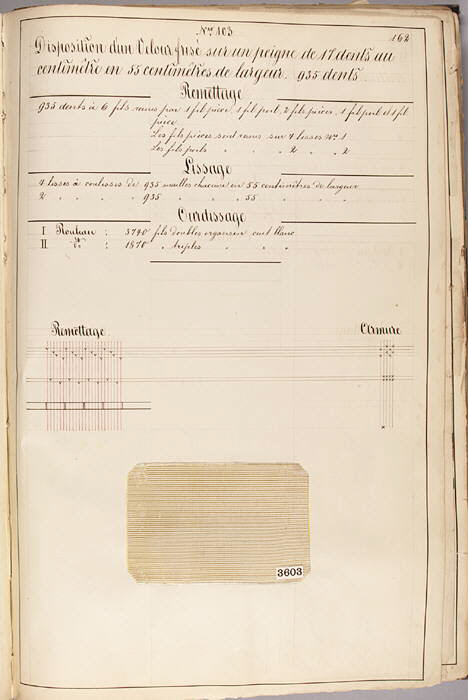 No 103
162
Disposition d'un Velour frisé sur un peigne de 17 dents au
centimètre en 55 centimètres de largeur. 935 dents
Remettage
935 dents à 6 fils remis par 1 fil pièce, 1 fil poil, 2 fils pièces, 1 fil poil et 1 fil
pièce
Les fils pièces sont remis sur 4 lisses No 1
Les fils poils " " " 2 " " 2
Lissage
4 lisses à coulisses de 935 mailles chacune en 55 centimètres de largeur
2 " " " 935 " " " 55 " " "
Ourdissage
I Rouleau : 3740 fils doubles organsin cuit blanc
II do : 1870 " triples " " "
Remettage
Armure
3603